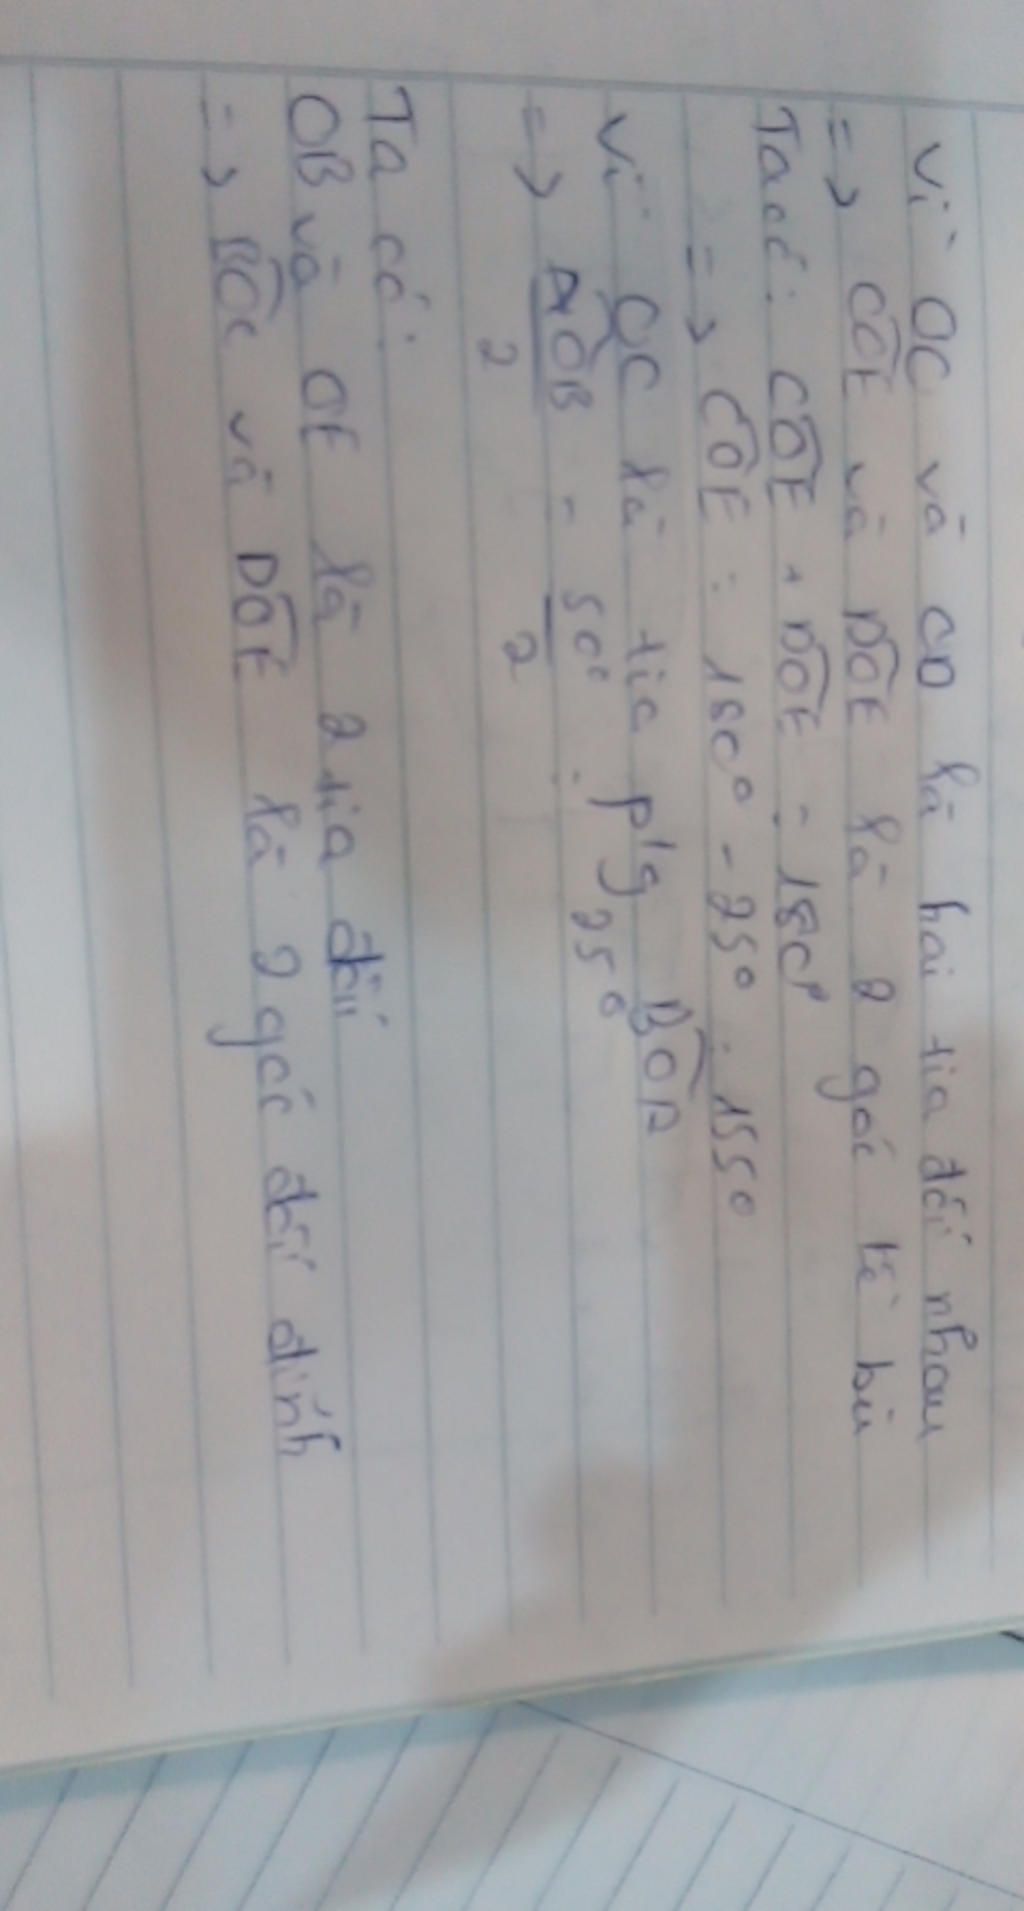 Vì OC và CD là hai tia đối nhau
=> CÔE và DÔE là 2 góc kề bù
Ta có: CÔE + DÔE = 180°
=> CÔE = 180° - 25° = 155°
Vì OC là tia p'g BÔA
=> AÔB/2 = 50°/2 = 25°
Ta có:
OB và OE là 2 tia đối
=> BÔC và DÔE là 2 góc đối đỉnh